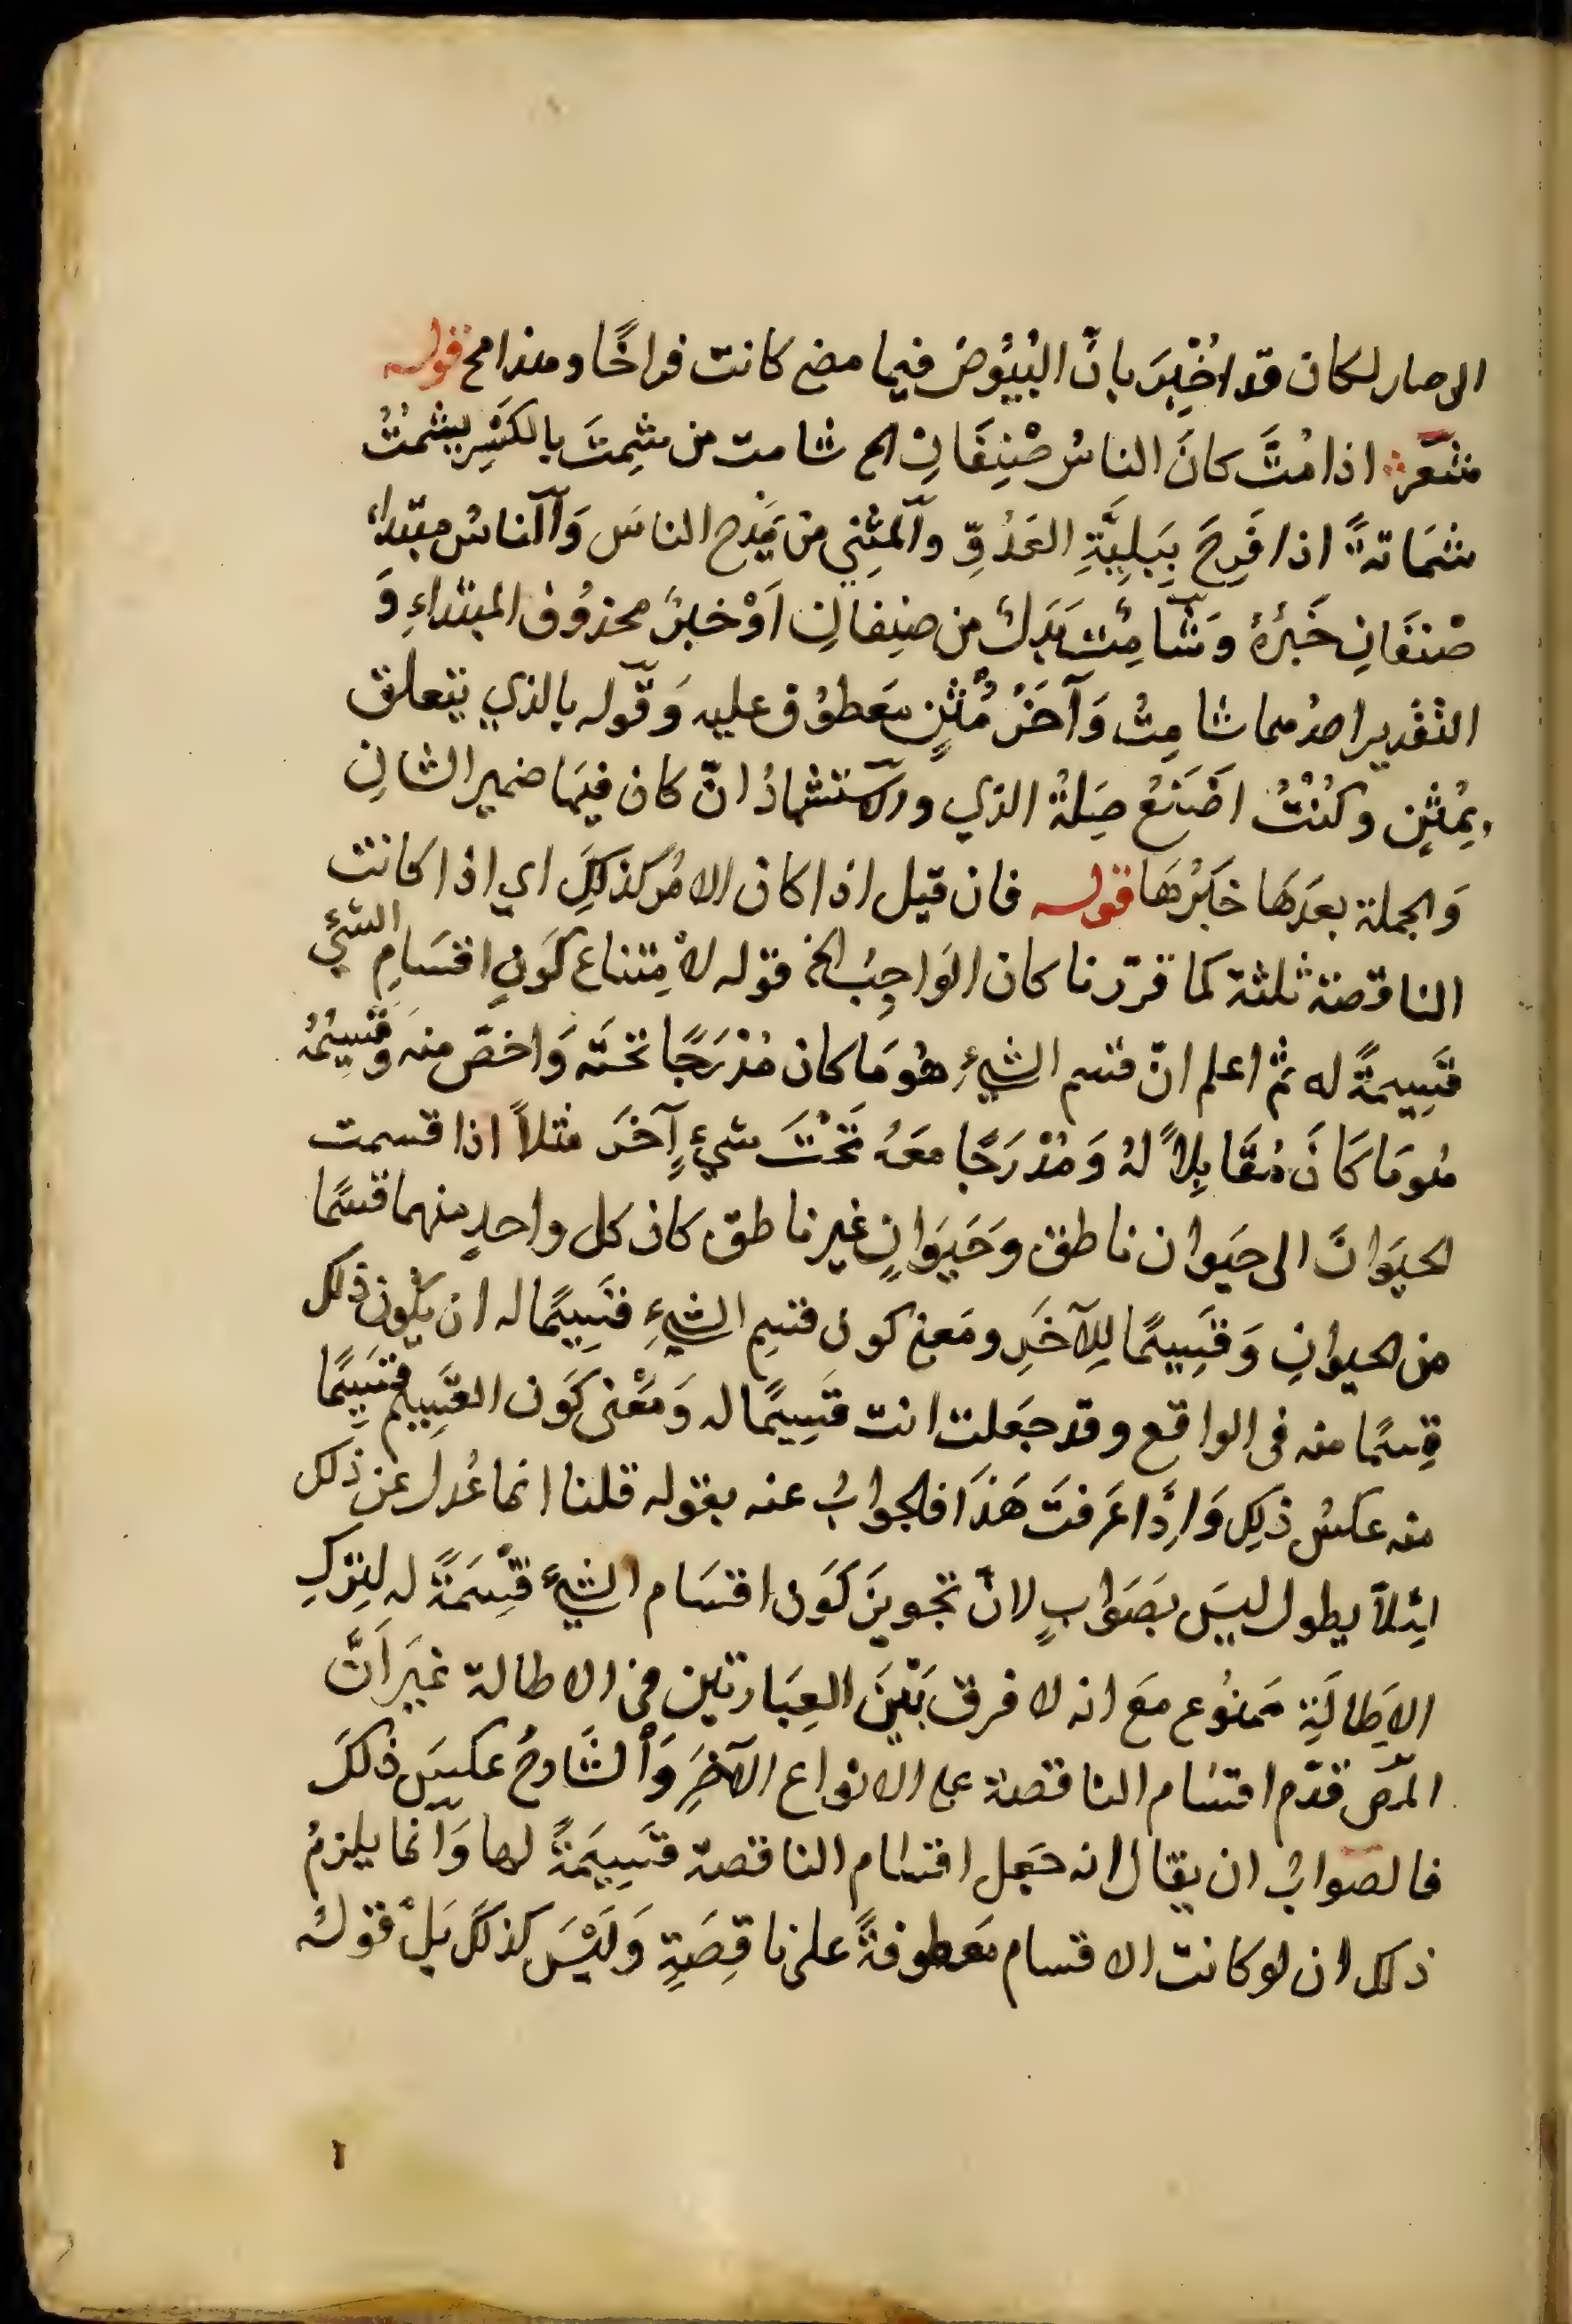 الى صار لكان قد اُخْبِرَ بانَّ البُيُوضَ فيما مضى كانت فراخًا وهذا مح قوله
شعر اذا مُتُّ كانَ الناسُ صْنِفَانِ الح شامت من شَمِتَ بالكَسْرِ يشمَتُ
شمَاتةً اذا فَرِحَ بِبَلِيَّةِ العَدُوِّ وآلمثِني من يَمْدح الناسَ وَآلناسُ مبتداءٌ
صْنفَانِ خَبَرُهُ وشَامِتٌ بَدَلٌ من صنِفانِ اَوْ خبرُ محذوُف المبتداءِ وَ
التقدير احدُهما شامِتٌ وَآخَرُ مُثْنٍ معَطوُف عليه وَقوله بالذي يتعلق
بِمُثنٍ وكُنْتُ اصَنَعُ صِلةُ الذي والاستشهادُ انّ كان فيَها ضمير الشانِ
وَالجملة بعدَهَا خبَرُهَا قوله فان قيل اذا كان الامُر كذلكَِ اي اذا كانت
الناقصة ثلثة كما قررنا كان الوَاجِبُ الخ قوله لاْمِتناع كَوَنِ اقسَامِ الشئِ
قَسِيمةً له ثم اعلم انّ قسم الشئِ هوُ مَا كان مُنْدرَجًا تحتَه وَاخصّ منه وَقَسِيمُهُ
هُو مَا كَانَ مُقَابِلاً لهُ وَمُنْدرَجًا معَهُ تَحْتَ شيءٍ آخَرَ مثلاً اذا قسمت
الحيَوَانَ الى حيَوان ناطق وحَيَوَانٍ غير ناطق كان كل واحدٍ منهما قسمًا
من الحيوانِ وَقَسِيمًا لِلآخَرِ ومَعنى كون قسِم الشئِ قسَيِمًا له ان يكُون ذلك
قِسمًا منه فى الواقع وقد جعَلت انت قَسِيمًا له وَمعْنى كوَن القَسِيم قسَيِمًا
منه عكسُ ذلِك وَاِذَا عَرفتَ هَذَا فالجوابُ عنه بقوله قلنا انما عُدل عن ذلك
لِئلاّ يطول ليسَ بصَوَابٍ لانّ تجويزَ كوَن اقسَام الشئ قِسْمَةً له لِتَركِ
الاِطَالَةِ ممَنوُع معَ انه لا فرق بَيْنَ العِبَارتين فى الاطالة غيَر اَنَّ
المص قدّم اقسَام الناقصة على الانواع الآخَرِ وَالشَّارحُ عكسَ ذلكَ
فالصَوابُ ان يقال انه جعَل اقسام الناقصة قسَيِمَةً لها وَانما يلزمُ
ذلك ان لو كانت الاقسام مَعطوفةً على ناقِصَةٍ وَلَيْسَ كذلكَ بَلْ قولهُ